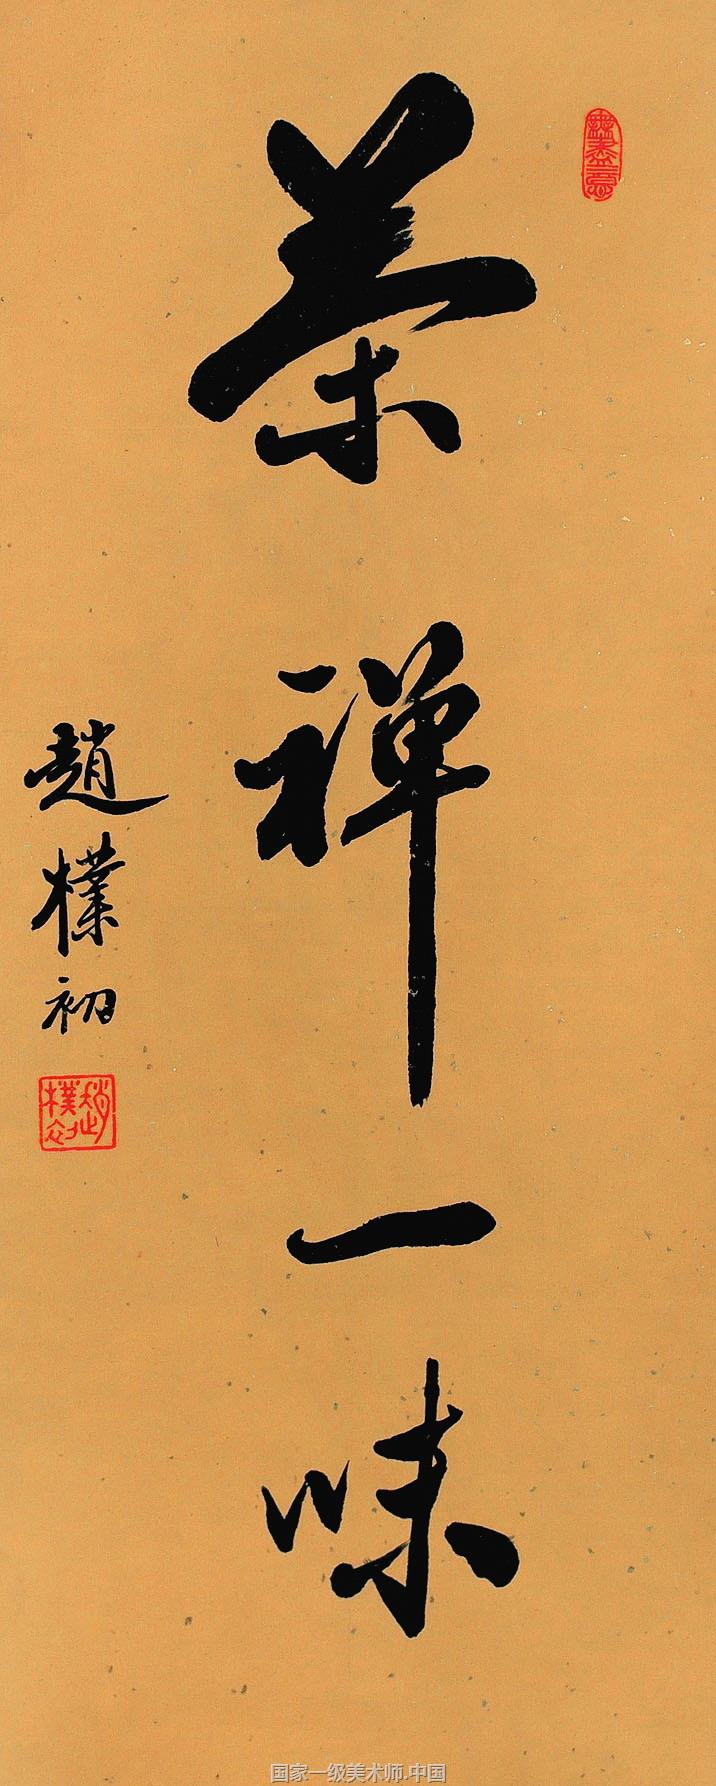 無盡意
茶禅一味
趙樸初
趙樸初
国家一级美术师.中国